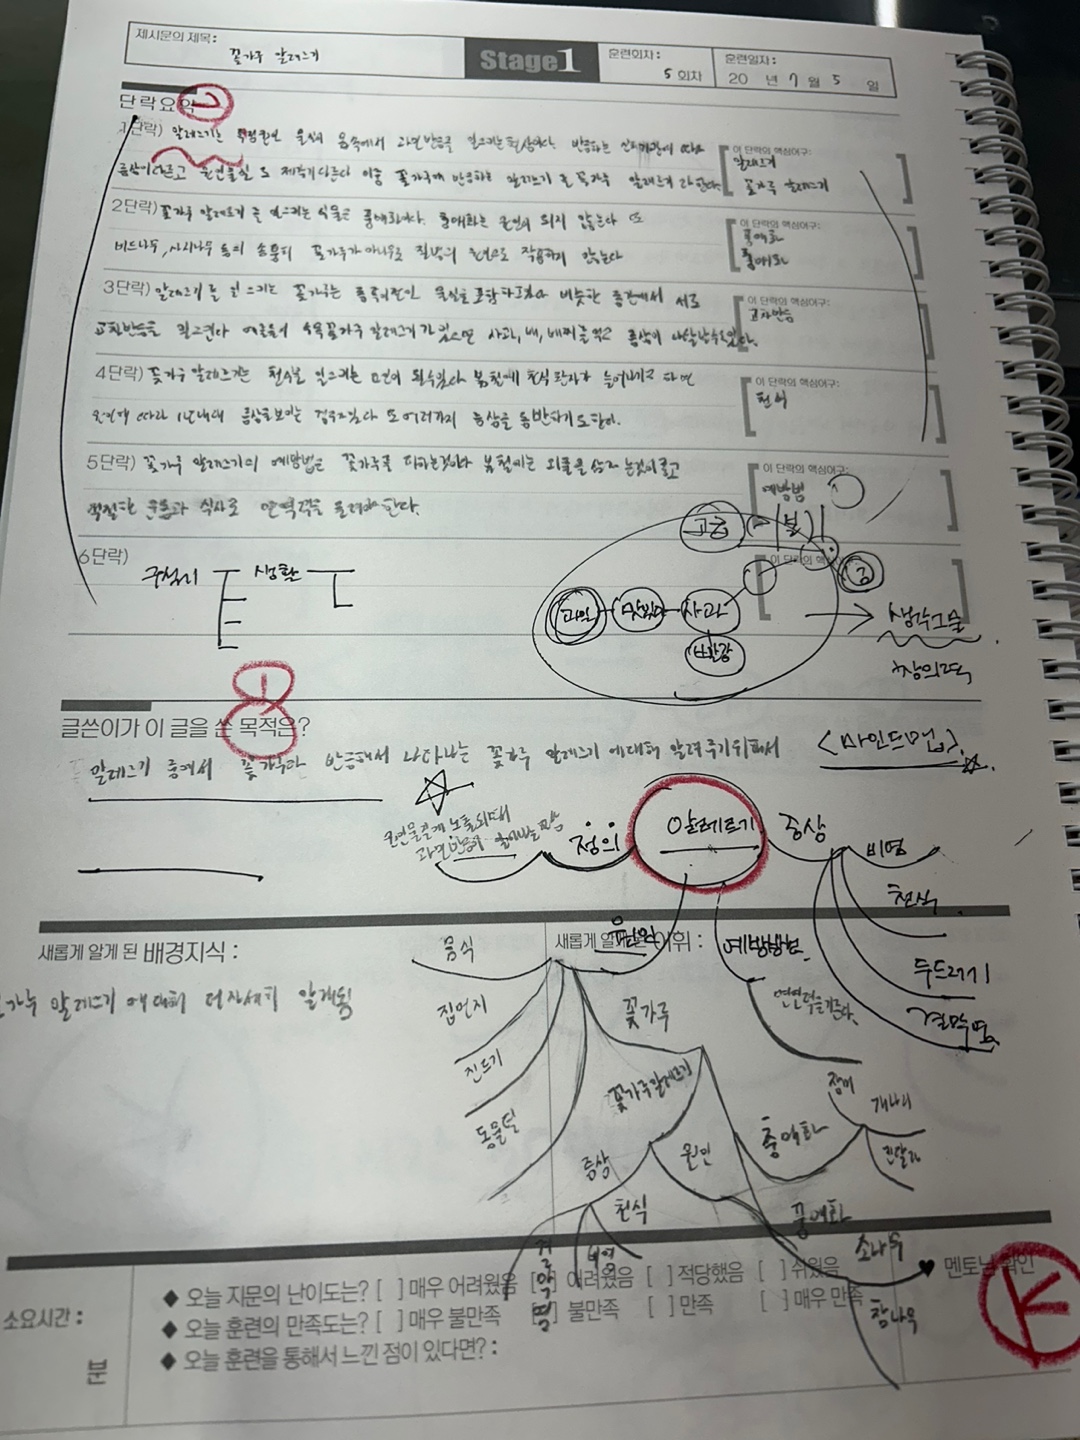 제시문의 제목:
꽃가루 알레르기
Stage1
훈련회차:
5 회차
훈련일자:
20 년 7 월 5 일
단락요약
1단락) 알레르기는 물질이 몸속에서 과민반응을 일으키는 현상이다. 반응하는 신체기관에 따라
증상이 다르고 원인물질도 제각기 다르다 이중 꽃가루에 반응하는 알레르기를 꽃가루 알레르기라 한다.
이 단락의 핵심어구:
알레르기
꽃가루 알레르기
2단락) 꽃가루 알레르기를 일으키는 식물은 풍매화이다. 충매화는 원인이 되지 않는다 또
버드나무, 사시나무 등의 솜뭉치 꽃가루가 아니므로 질병의 원인으로 작용하지 않는다
이 단락의 핵심어구:
풍매화
충매화
3단락) 알레르기를 일으키는 꽃가루는 물질을 포함하고있다 비슷한 종간에서 서로
교차반응을 일으킨다 꽃가루 알레르기가 있으면 사과, 배, 증상이 나타날수있다.
이 단락의 핵심어구:
교차반응
4단락) 꽃가루 알레르기는 천식을 일으키는 요인이 될수있다 봄철에 천식 환자가 늘어나기고 하면
원인에 따라 1년내내 증상을 보이는 경우도있다 또 여러가지 증상을 동반하기도한다.
이 단락의 핵심어구:
천식
5단락) 꽃가루 알레르기의 예방법은 꽃가루를 피하는것이다 봄철에는 외출을 삼가는것이좋고
적절한 운동과 식사로 면역력을 올려야 한다.
이 단락의 핵심어구:
예방법
6단락)
이 단락의 핵심어구:
생활
과일
맛있다
사과
빨강
공
생각그물
창의력
글쓴이가 이 글을 쓴 목적은?
알레르기 중에서 꽃가루와 반응해서 나타나는 꽃가루 알레르기에대해 알려주기위해서
<마인드맵>
원인물질에 노출되때
과민반응이 일어나는 현상
정의
알레르기
증상
비염
천식
두드러기
결막염
새롭게 알게 된 배경지식 :
꽃가루 알레르기에 대해 더자세히 알게됨
새롭게 알게 된 어휘 :
예방방법
면역력을기른다.
음식
집먼지
진드기
동물털
꽃가루
꽃가루알레르기
증상
천식
비염
결막염
원인
충매화
장미
개나리
진달래
풍매화
소나무
참나무
소요시간 :
분
◆ 오늘 지문의 난이도는? [ ]매우 어려웠음 [ ] 어려웠음 [ ]적당했음 [ ] 쉬웠음
◆ 오늘 훈련의 만족도는? [ ]매우 불만족 [ ] 불만족 [ ] 만족 [ ] 매우 만족
◆ 오늘 훈련을 통해서 느낀 점이 있다면? :
♥ 멘토님 확인